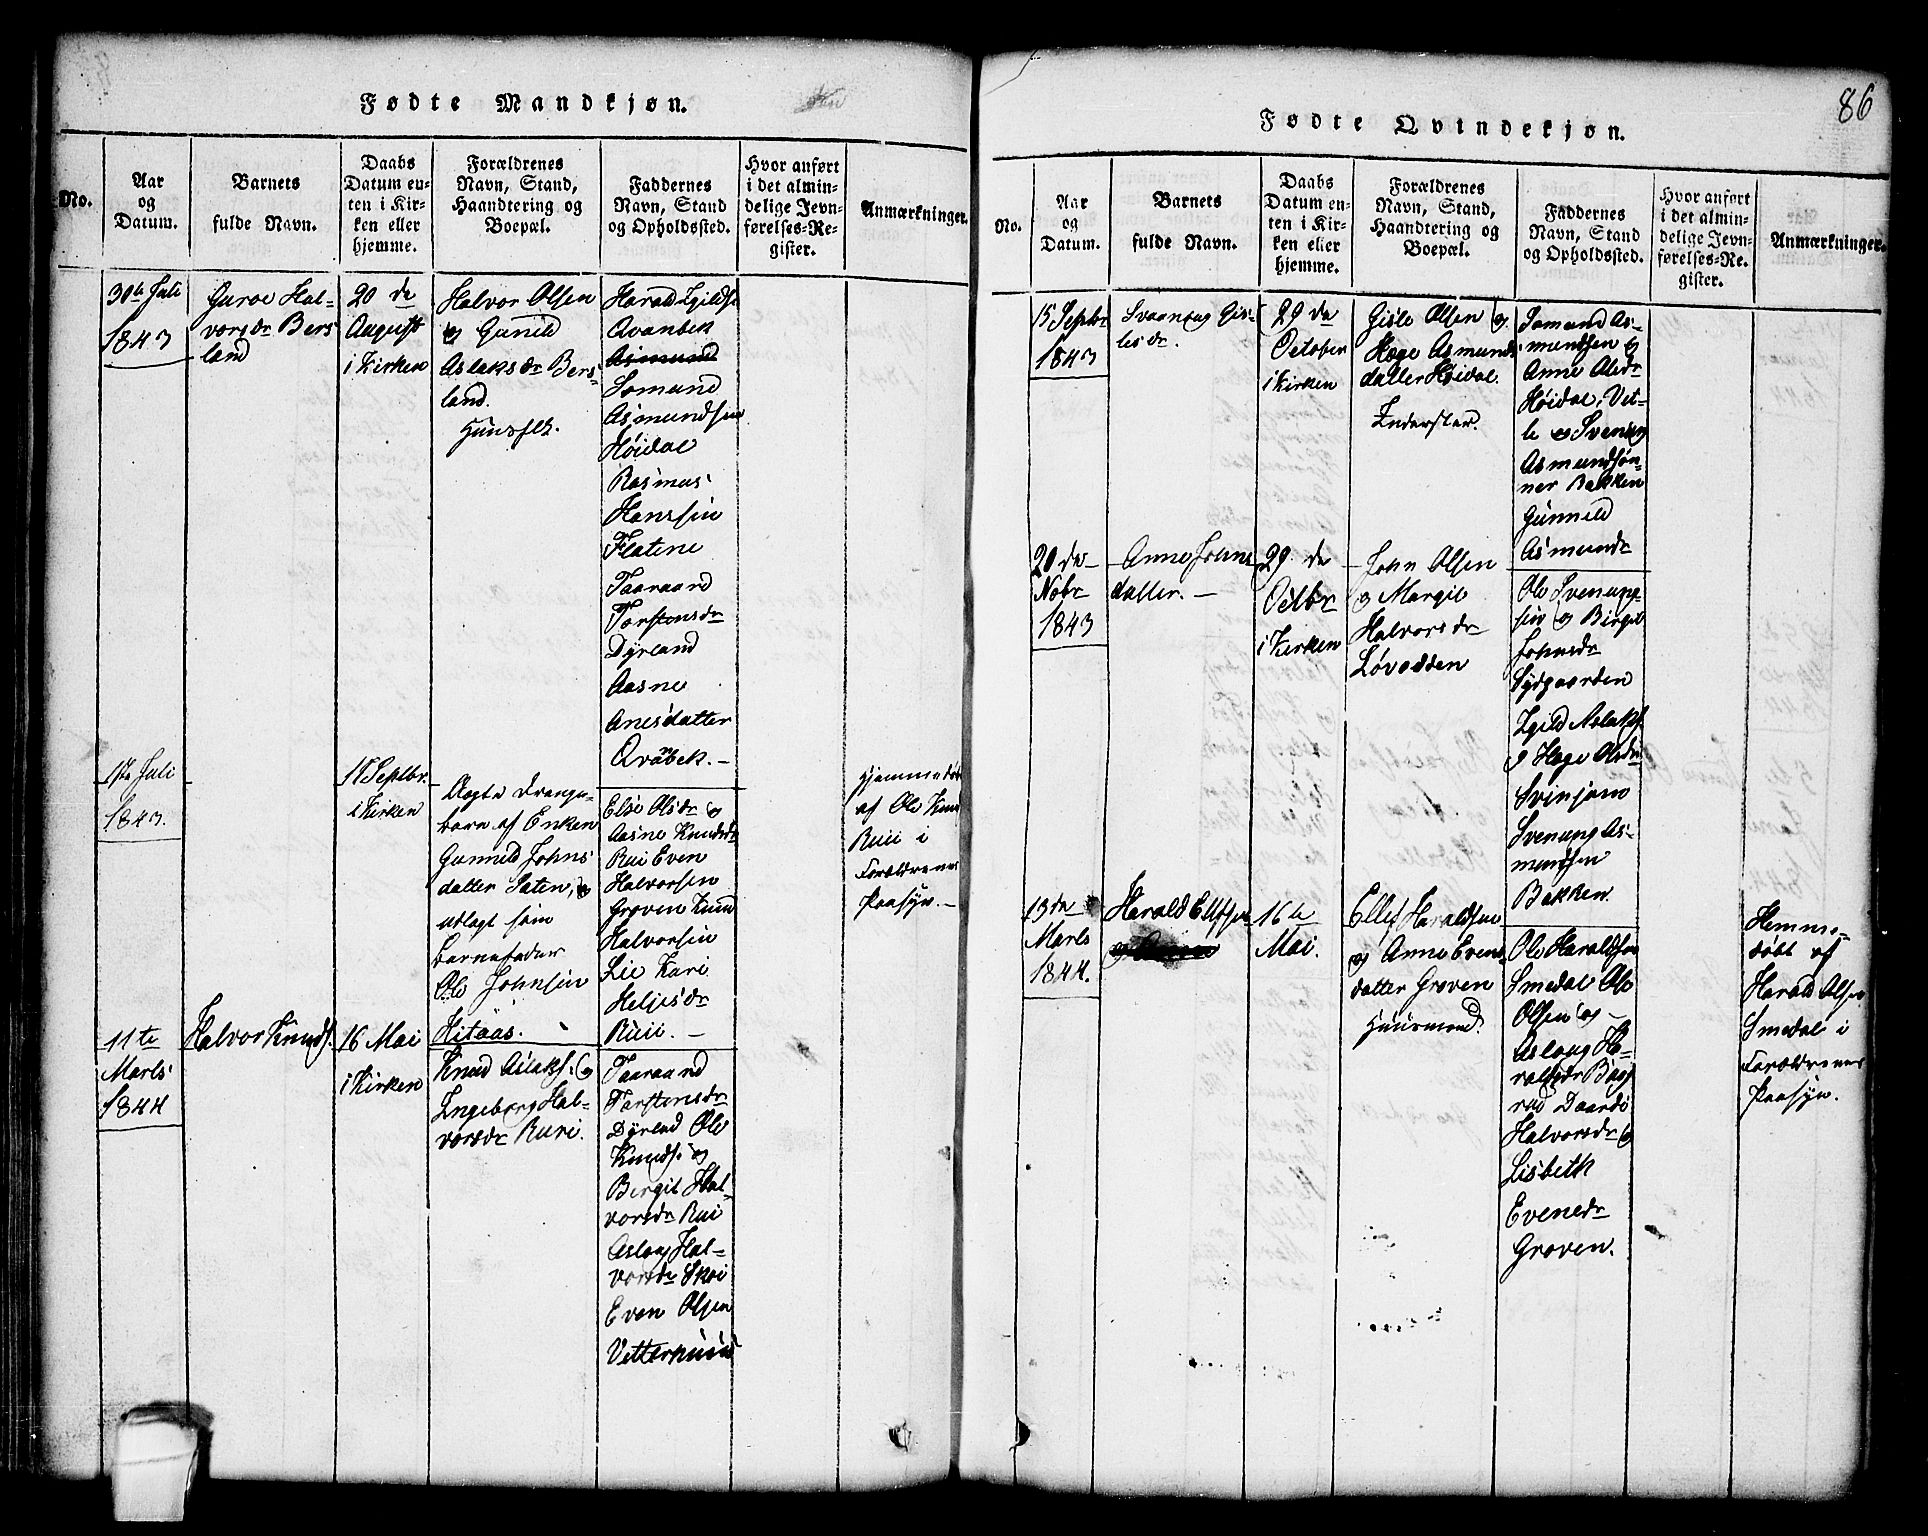 Fødte Mandkjøn.
No.
Aar
og
Datum.
Barnets
fulde Navn.
Daabs
Datum en-
ten i Kir-
ken eller
hjemme.
Forældrenes
Navn, Stand,
Haandtering og
Boepæl.
Faddernes
Navn, Stand
og Opholdssted.
Hvor anført
i det almin-
delige Jevn-
førelses-Re-
gister.
Anmærkninger.
30te Juli
1843
Guroe Hal-
vorsdr Bers
land
20 de
August
i Kirken
Halvor Olsen
og Gunild
Aslaksdr Bers
land.
Huusflk.
Harald Egilds.
Qvanbek
Asmund
Somund
Asmundsen
Høidal
Rasmus
Hanssen
Flatene
Taaraand
Torstensdr
Dyrland
Aasne
Anesdatter
Qvabek. –
17de Juli
1843.
17 Septbr.
i Kirken
Aagte Drenge-
barn af Enken
Gunnild Johns
datter Saten, og
udlagt som
Barnefader
Ole Johnsen
Hitaas.
Else Olsdr og
Aasne Knudsdr
Rui Even
Halvorsen
Groven Knud
Halvorsen
Lie Kari
Heljesdr
Ruii. –
Hjemmedøbt
af Ole Knus
Ruii i
Forældrenes
Paasyn. –
11te
Marts
1844
Halvor Knuds.
16 Mai
i Kirken
Knud Aslaks. og
Ingeborg Hal-
vorsdr Rui.
Taaraand
Torstensdr
Dyrland Ole
Knuds. og
Bergit Hal-
vorsdr Rui
Aslaug Hal-
vorsdr Skoi
Even Olsen
Vetterhuus
86
Fødte Qvindekjøn.
No.
Aar
og
Datum.
Barnets
fulde Navn.
Daabs
Datum en-
ten i Kir-
ken eller
hjemme.
Forældrenes
Navn, Stand,
Haandtering og
Boepæl.
Faddernes
Navn, Stand
og Opholdssted.
Hvor anført
i det almin-
delige Jevn-
førelses-Re-
gister.
Anmærkninger.
15 Septbr
1843
Svanaug Gis-
lesdr.
29 da
October
i Kirken
Gisle Olsen og
Hæge Asmunds
datter Høidal.
Inderster.
Somund As-
mundsen og
Anne Olsdr
Høidal, Vet-
le og Svenung
Asmundsøn-
ner Bakken
Gunnild
Asmundr
20 de
Nobr
1843
Anne Johns
datter. –
29 de
Octbr
i Kirken
John Olsen
og Margit
Halvorsdr
Løvodden
Ole Svenung-
sen og Birgit
Johnsdr
Sydgaarden
Egild Aslaks.
og Hæge Olsdr
Svinjom
Svenung As-
mundsen
Bakken.
13 de
Marts
1844.
Harald Ellefsen
16te
Mai.
Ellef Haraldsen
og Anne Evens
datter Groven
Huusmand.
Ole Haraldsen
Smedal Ole
Olsen og –
Aslaug Ha-
raldsdr Baas
rud Daardi
Halvorsdr og
Lisbeth
Evensdr
Groven.
Hemme-
døbt af
Harald Olsen
Smedal i
Forældrenes
Paasyn.